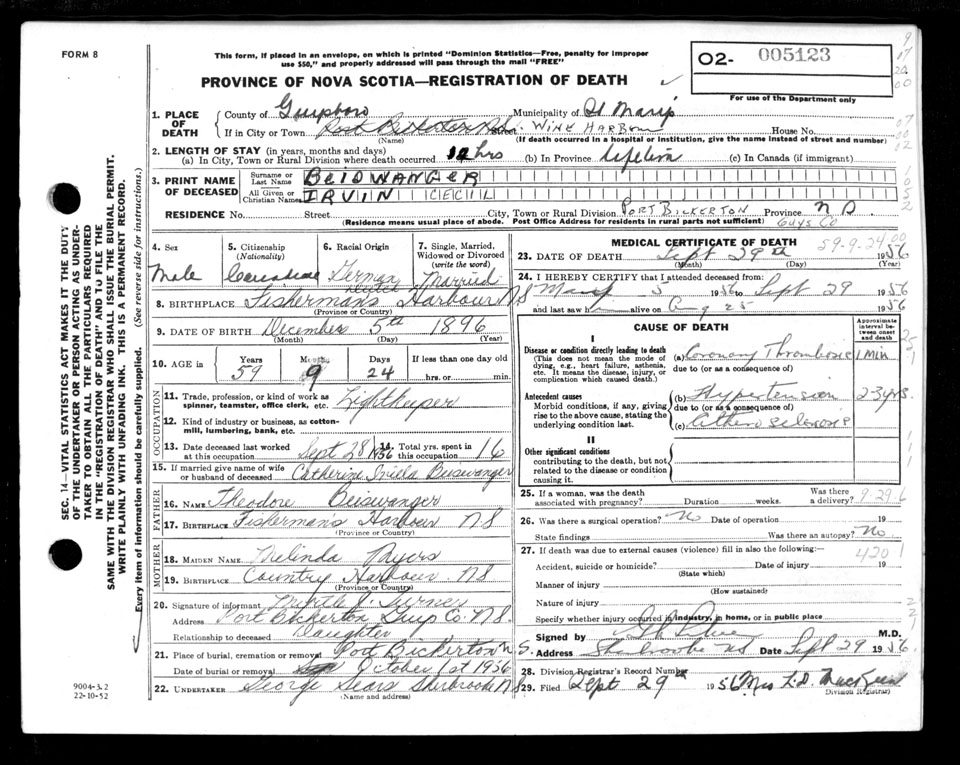 FORM 8
This form, if placed in an envelope, on which is printed "Dominion Statistics—Free, penalty for improper
use $50," and properly addressed will pass through the mail "FREE"
O2- 005123
For use of the Department only
PROVINCE OF NOVA SCOTIA—REGISTRATION OF DEATH
1. PLACE OF DEATH
County of Guysboro Municipality of St Marys
If in City or Town Port Bickerton WINE HARBOUR House No.
(Name) (If death occurred in a hospital or institution, give the name instead of street and number)
2. LENGTH OF STAY (in years, months and days)
(a) In City, Town or Rural Division where death occurred 12 hrs (b) In Province Lifetime (c) In Canada (if immigrant)
3. PRINT NAME OF DECEASED
Surname or Last Name BEISWANGER
All Given or Christian Names IRVIN CECIL
RESIDENCE No. Street City, Town or Rural Division PORT BICKERTON Province N S.
(Residence means usual place of abode. Post Office Address for residents in rural parts not sufficient) Guys Co
4. Sex Male
5. Citizenship (Nationality) Canadian
6. Racial Origin German
7. Single, Married, Widowed or Divorced (write the word) Married
8. BIRTHPLACE Fishermans Harbour NS
(Province or Country)
9. DATE OF BIRTH December 5th 1896
(Month) (Day) (Year)
10. AGE in Years 59 Months 9 Days 24 If less than one day old hrs. or min.
OCCUPATION
11. Trade, profession, or kind of work as spinner, teamster, office clerk, etc. Lightkeeper
12. Kind of industry or business, as cotton-mill, lumbering, bank, etc.
13. Date deceased last worked at this occupation Sept 28 1956 14. Total yrs. spent in this occupation 16
15. If married give name of wife or husband of deceased Catherine Beiswanger
FATHER
16. NAME Theodore Beiswanger
17. BIRTHPLACE Fishermans Harbour NS
(Province or Country)
MOTHER
18. MAIDEN NAME Melinda Myers
19. BIRTHPLACE Country Harbour NS
(Province or Country)
20. Signature of informant Myrtle J.
Address Port Bickerton Guys Co. NS.
Relationship to deceased Daughter
21. Place of burial, cremation or removal Port Bickerton NS.
Date of burial or removal October 1st 1956
22. UNDERTAKER George Sears Sherbrooke NS
(Name and address)
MEDICAL CERTIFICATE OF DEATH 59-9-24 00
23. DATE OF DEATH Sept 29th 1956
(Month) (Day) (Year)
24. I HEREBY CERTIFY that I attended deceased from:
May 5 1956 to Sept 29 1956
and last saw h alive on Aug 25 1956
CAUSE OF DEATH
Approximate interval between onset and death
I
Disease or condition directly leading to death
(This does not mean the mode of dying, e.g., heart failure, asthenia, etc. It means the disease, injury, or complication which caused death.)
(a) Coronary Thrombosis 1 MIN
due to (or as a consequence of)
Antecedent causes
Morbid conditions, if any, giving rise to the above cause, stating the underlying condition last.
(b) Hypertension 2-3 yrs.
due to (or as a consequence of)
(c) Atherosclerosis
II
Other significant conditions
contributing to the death, but not related to the disease or condition causing it.
25. If a woman, was the death associated with pregnancy? Duration weeks. Was there a delivery? 9-29.6
26. Was there a surgical operation? No Date of operation 19
State findings Was there an autopsy? No
27. If death was due to external causes (violence) fill in also the following:— 420 1
Accident, suicide or homicide? Date of injury 19
(State which)
Manner of injury
(How sustained)
Nature of injury
Specify whether injury occurred in industry, in home, or in public place
Signed by M.D.
Address Sherbrooke NS Date Sept 29 1956.
28. Division Registrar's Record Number
29. Filed Sept 29 1956 Mrs
Division Registrar)
SEC. 14—VITAL STATISTICS ACT MAKES IT THE DUTY
OF THE UNDERTAKER OR PERSON ACTING AS UNDER-
TAKER TO OBTAIN ALL THE PARTICULARS REQUIRED
IN THE "REGISTRATION OF DEATH" AND TO FILE THE
SAME WITH THE DIVISION REGISTRAR WHO SHALL ISSUE THE BURIAL PERMIT.
WRITE PLAINLY WITH UNFADING INK. THIS IS A PERMANENT RECORD.
Every item of information should be carefully supplied. (See reverse side for instructions.)
9004-3.2
22-10-52